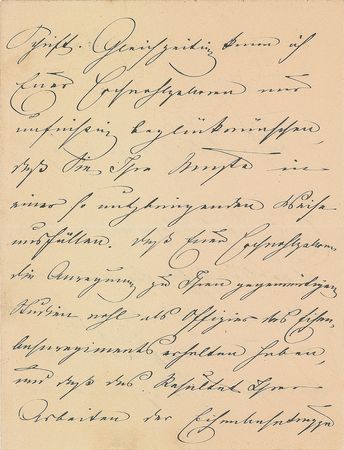 Schrift. Gleichzeitig kann ich
Euer Hochwohlgeboren nur
aufrichtig beglückwünschen,
daß Sie Ihre Muße in
einer so nutzbringenden Weise
ausfüllen. Daß Euer Hochwohlgeboren
die Anregung zu Ihren gegenwärtigen
Studien wohl als Offizier des Eisen-
bahnregiments erhalten haben,
und daß das Resultat Ihrer
Arbeiten der Eisenbahntruppe